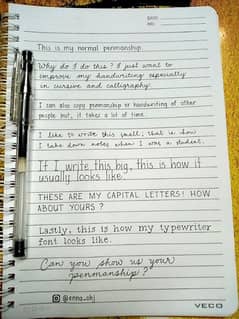 DATE
NO.
This is my normal penmanship.
Why do I do this? I just want to
improve my handwriting especially
in cursive and calligraphy.
I can also copy penmanship or handwriting of other
people but, it takes a lot of time.
I like to write this small; that is how
I take down notes when I was a student.
If I write this big, this is how it
usually looks like.
THESE ARE MY CAPITAL LETTERS! HOW
ABOUT YOURS?
Lastly, this is how my typewriter
font looks like.
Can you show us your
penmanship?
@enna_ohj
VECO